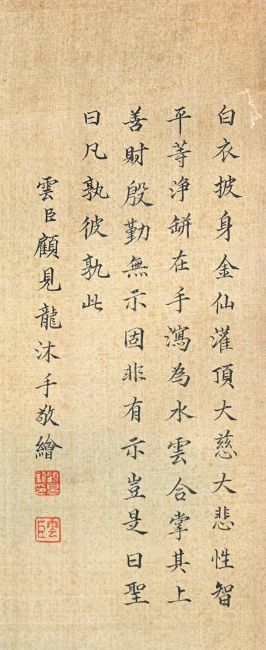 白衣披身金仙灌頂大慈大悲性智
平等淨缾在手瀉為水雲合掌其上
善財殷勤無示固非有示豈是曰聖
曰凡孰彼孰此
雲臣顧見龍沐手敬繪
雲臣